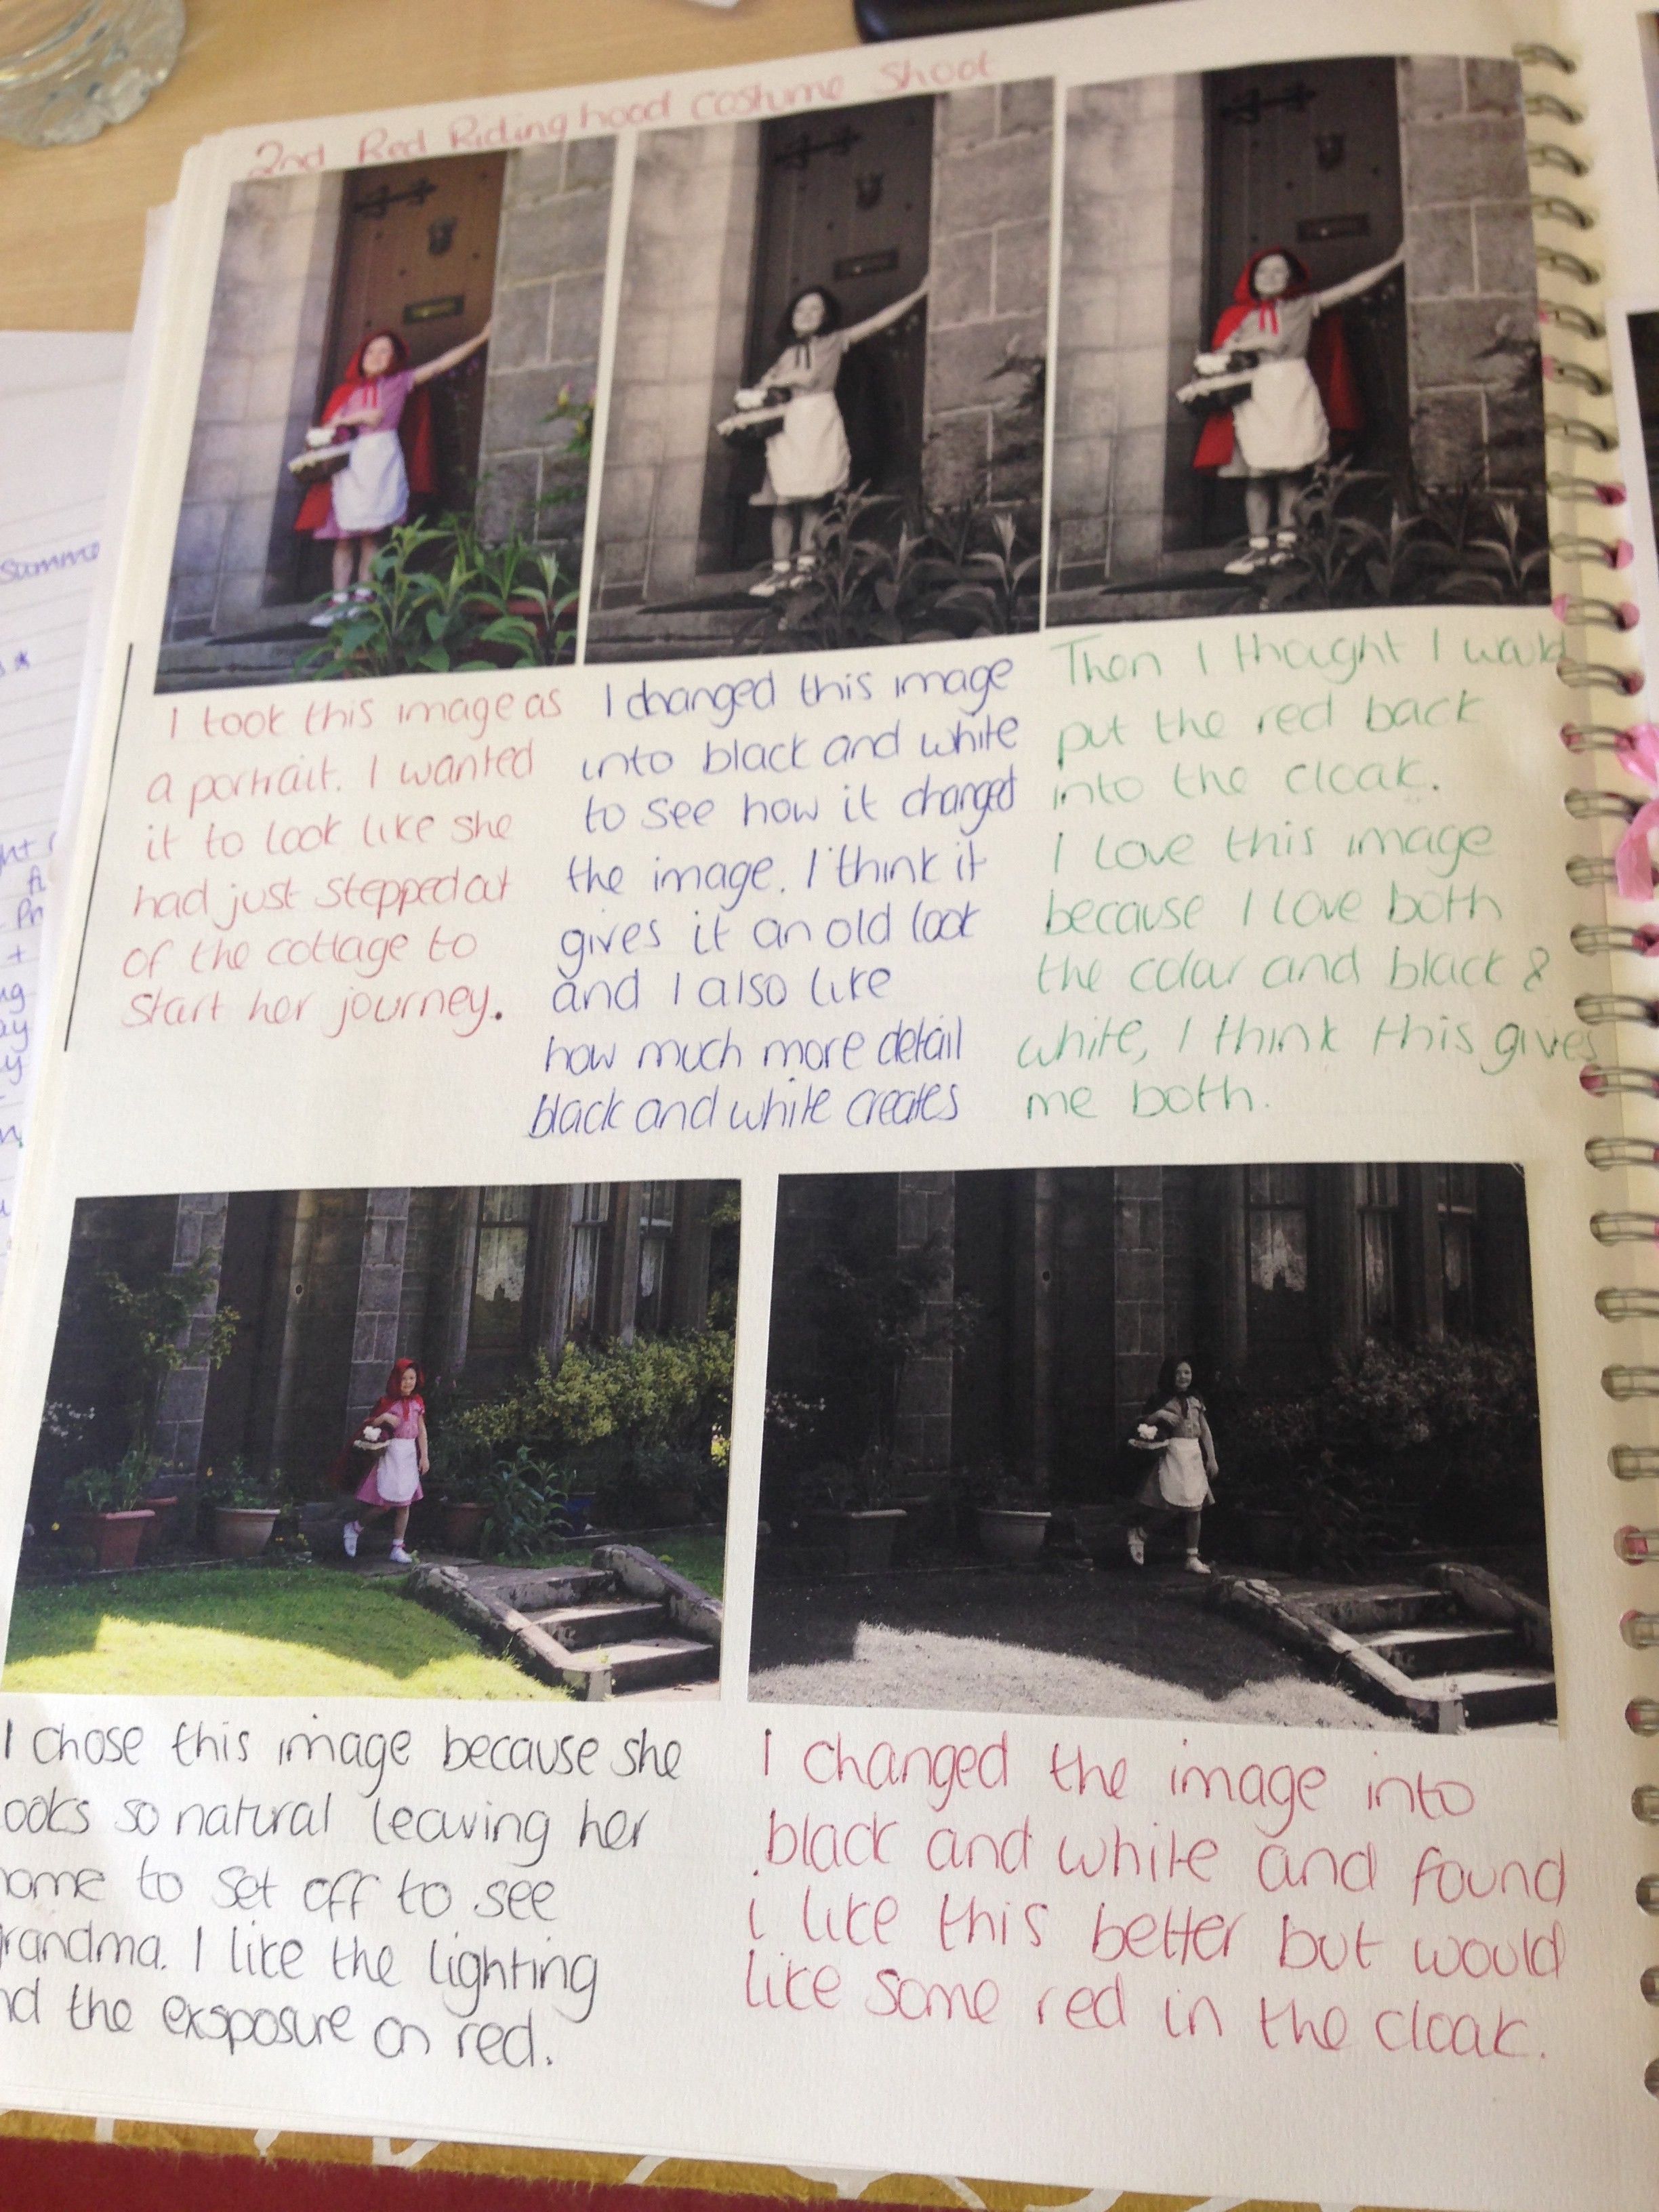 2nd Red Riding hood costume shoot
I took this image as
a portrait. I wanted
it to look like she
had just stepped out
of the cottage to
start her journey.
I changed this image
into black and white
to see how it changed
the image. I think it
gives it an old look
and I also like
how much more detail
black and white creates
Then I thought I would
put the red back
into the cloak.
I love this image
because I love both
the colour and black &
white, I think this gives
me both.
I chose this image because she
looks so natural leaving her
home to set off to see
grandma. I like the lighting
and the exsposure on red.
I changed the image into
black and white and found
i like this better but would
like some red in the cloak.